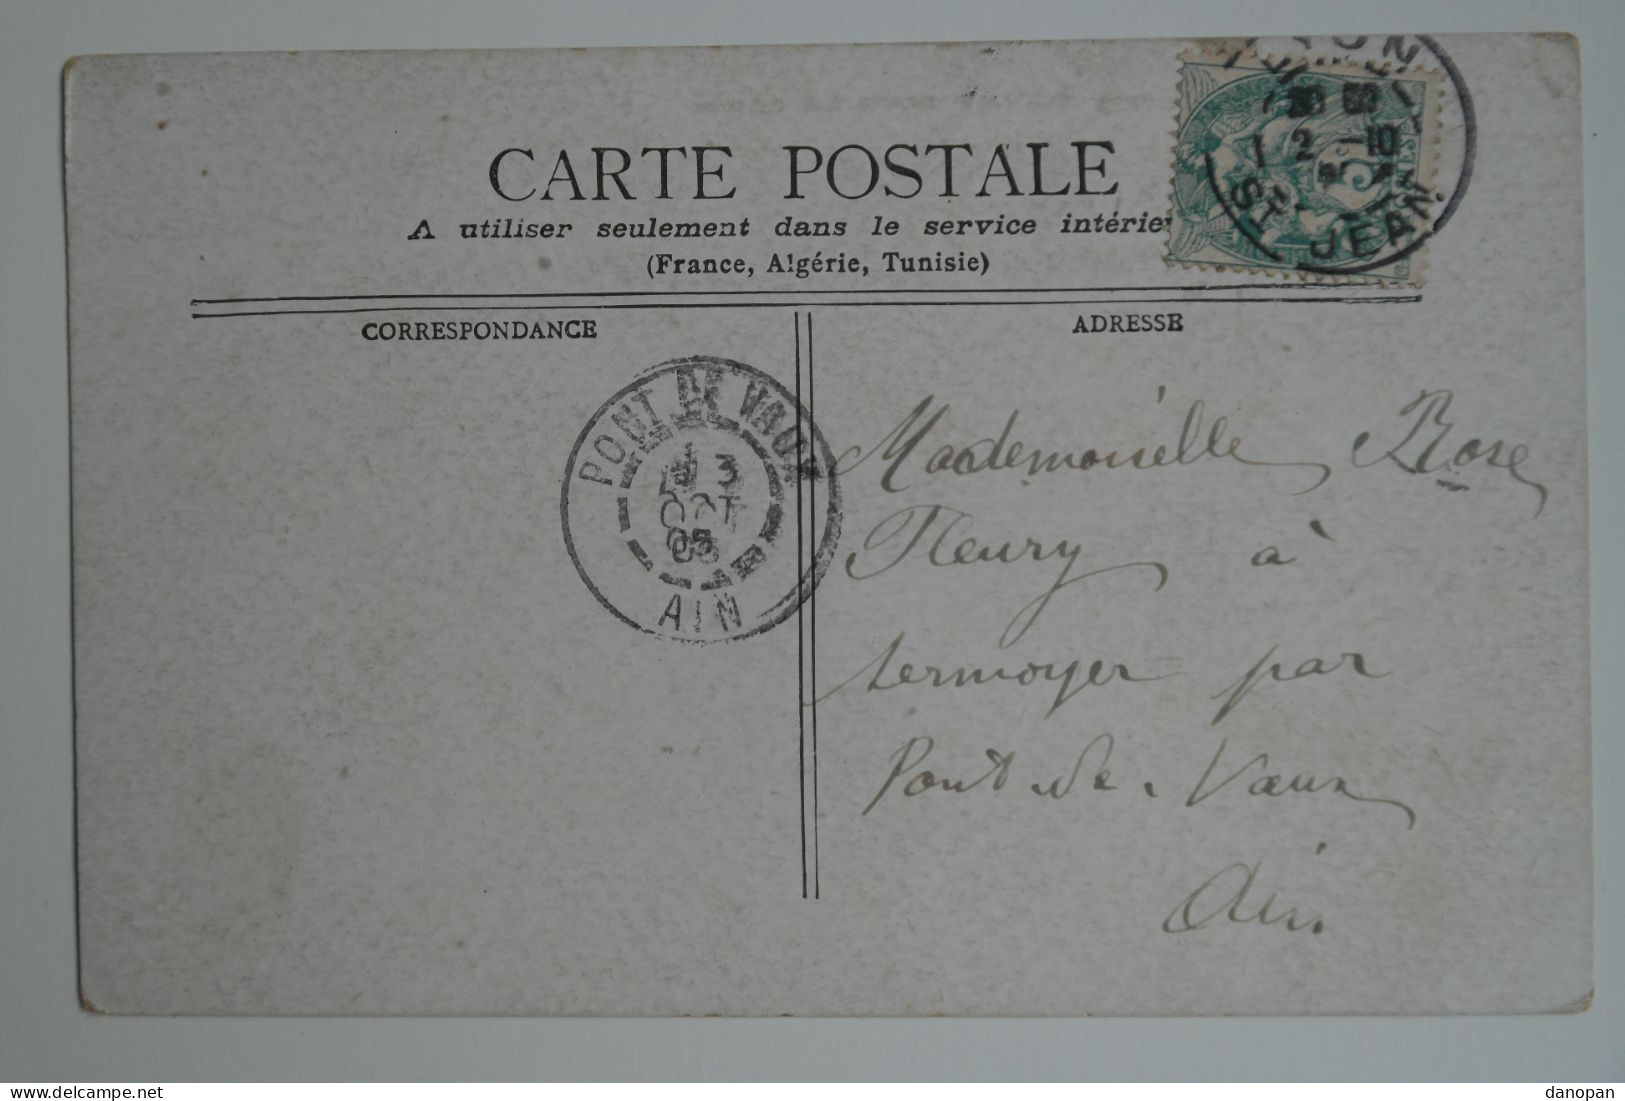 CARTE POSTALE
A utiliser seulement dans le service intérieu
(France, Algérie, Tunisie)
CORRESPONDANCE
ADRESSE
PONT DE VAUX
3
OCT
05
AIN
2 10
ST JEAN
Mademoiselle Rose
Fleury à
Sermoyer par
Pont-de-Vaux
Ain.
delcampe.net
danopan